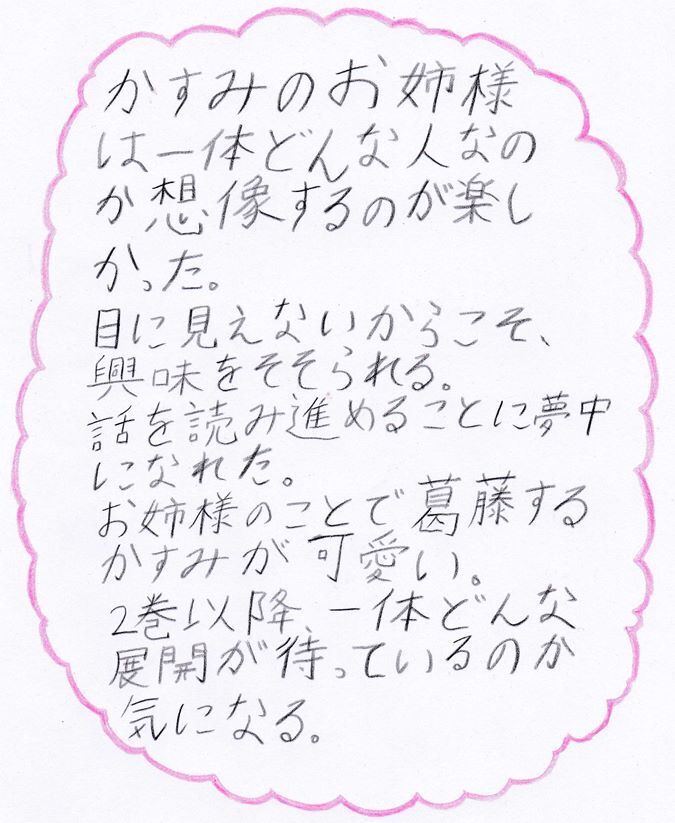 かすみのお姉様
は一体どんな人なの
か想像するのが楽し
かった。
目に見えないからこそ、
興味をそそられる。
話を読み進めることに夢中
になれた。
お姉様のことで葛藤する
かすみが可愛い。
2巻以降、一体どんな
展開が待っているのか
気になる。